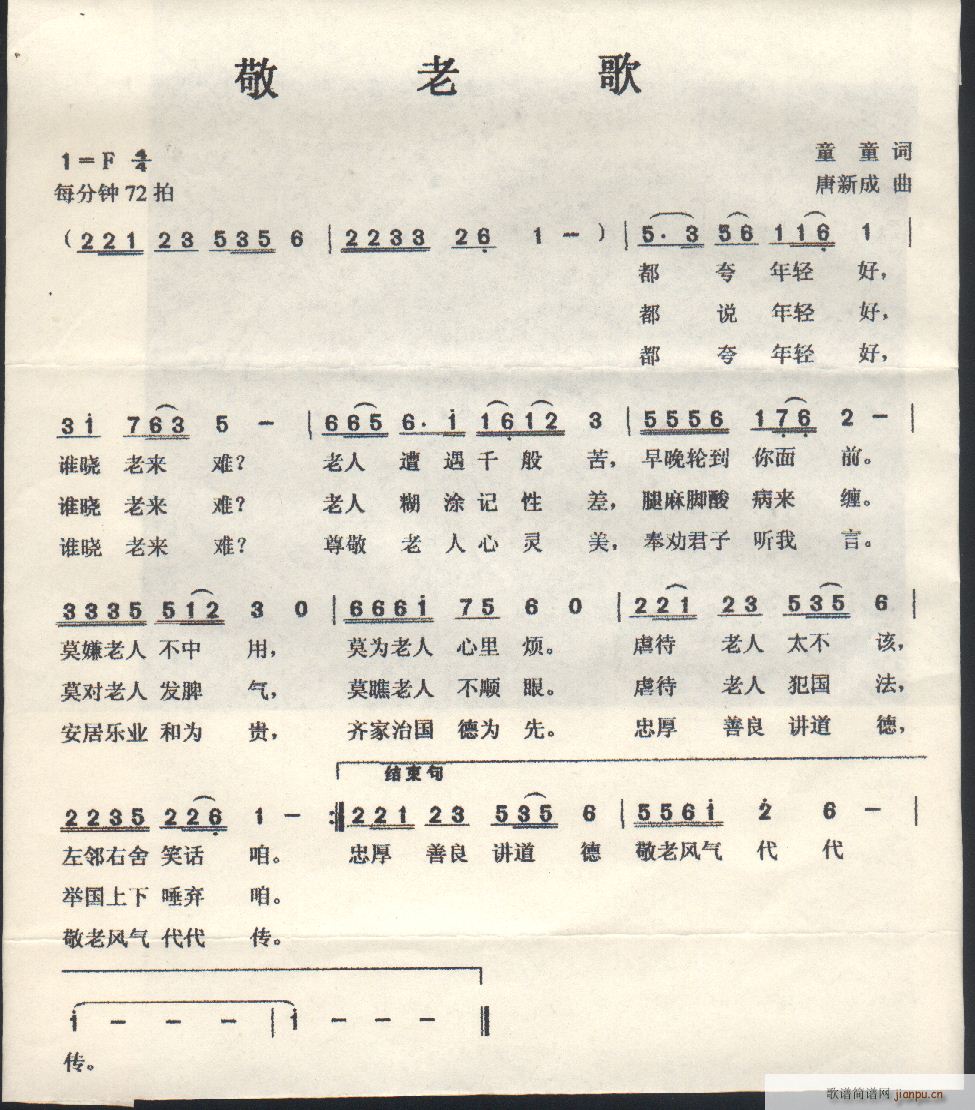 敬 老 歌
1=F 4/4
童 童 词
每分钟72拍
唐新成 曲
(221 23 535 6 | 2233 26 1 - ) | 5·3 56 116 1 |
都 夸 年轻 好,
都 说 年轻 好,
都 夸 年轻 好,
3i 763 5 - | 665 6·i 1612 3 | 5556 176 2 - |
谁晓 老来 难? 老人 遭遇千般 苦, 早晚轮到 你面 前。
谁晓 老来 难? 老人 糊涂记性 差, 腿麻脚酸 病来 缠。
谁晓 老来 难? 尊敬 老人心灵 美, 奉劝君子 听我 言。
3335 512 3 0 | 666i 75 6 0 | 221 23 535 6 |
莫嫌老人 不中 用, 莫为老人 心里 烦。 虐待 老人 太不 该,
莫对老人 发脾 气, 莫瞧老人 不顺 眼。 虐待 老人 犯国 法,
安居乐业 和为 贵, 齐家治国 德为 先。 忠厚 善良 讲道 德,
结束句
2235 226 1 - :‖ 221 23 535 6 | 556i 2 6 - |
左邻右舍 笑话 咱。 忠厚 善良 讲道 德 敬老风气 代 代
举国上下 唾弃 咱。
敬老风气 代代 传。
i - - - | i - - - ‖
传。
歌谱简谱网 jianpu.cn